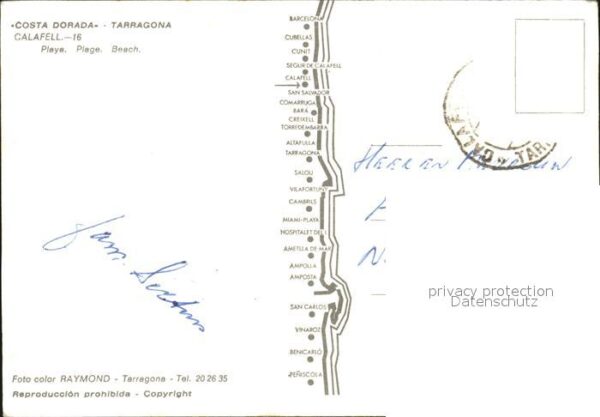 «COSTA DORADA» - TARRAGONA
CALAFELL.—16
Playa. Plage. Beach.
BARCELONA
CUBELLAS
CUNIT
SEGUR DE CALAFELL
CALAFELL
SAN SALVADOR
COMARRUGA
BARÁ
CREIXELL
TORREDEMBARRA
ALTAFULLA
TARRAGONA
SALOU
VILAFORTUNY
CAMBRILS
MIAMI-PLAYA
HOSPITALET DEL I.
AMETLLA DE MAR
AMPOLLA
AMPOSTA
SAN CARLOS
VINAROZ
BENICARLÓ
PEÑISCOLA
CALAF
TARR
HEER EN
privacy protection
Datenschutz
Foto color RAYMOND - Tarragona - Tel. 20 26 35
Reproducción prohibida - Copyright